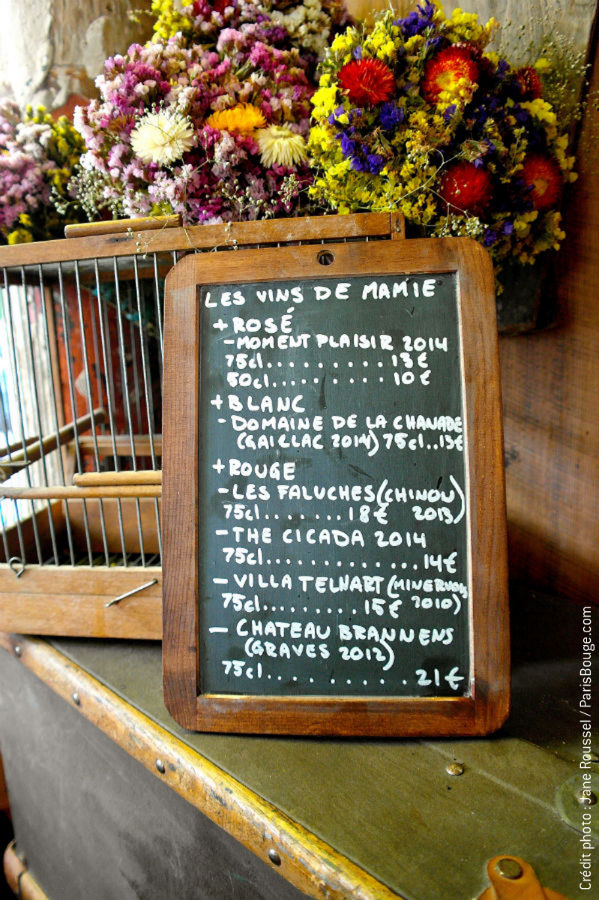 LES VINS DE MAMIE
+ ROSÉ
- MOMENT PLAISIR 2014
75cl.......... 13 €
50cl.......... 10 €
+ BLANC
- DOMAINE DE LA CHANADE
(GAILLAC 2014) 75cl..13€
+ ROUGE
- LES FALUCHES (CHINON)
75cl....... 18 € 2013)
- THE CICADA 2014
75cl............. 14 €
- VILLA TELHART (MINERVOIS
75cl......... 15 € 2010)
- CHATEAU BRANNENS
(GRAVES 2012)
75cl.......... 21 €
Crédit photo : Jane Roussel / ParisBouge.com